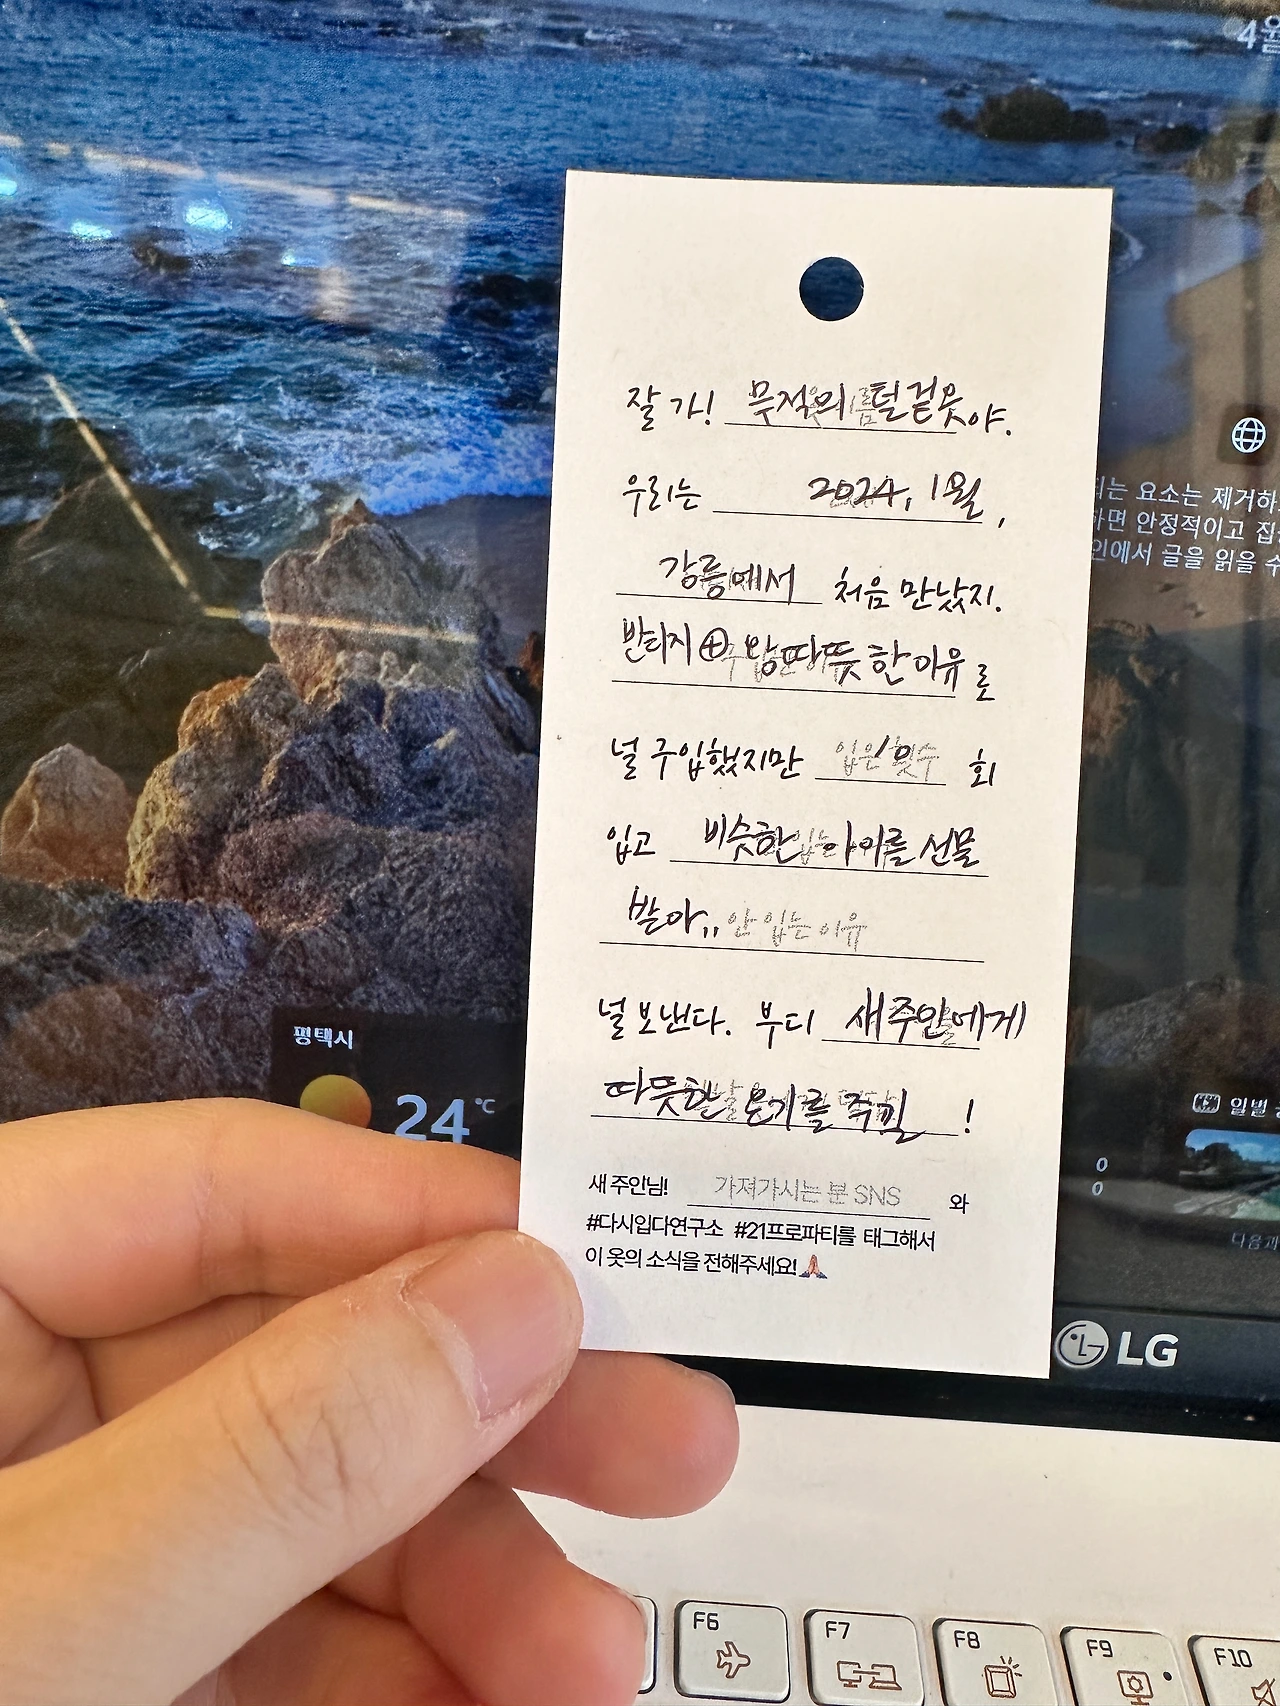 4월
잘 가! 무적의 털겉옷야.
우리는 2024, 1월,
강릉에서 처음 만났지.
반타지 ⊕ 왕따뜻한 이유로
널 구입했지만 입은 횟수 회
입고 비슷한 아이를 선물
받아,, 안 입는 이유
널 보낸다. 부디 새 주인에게
따뜻한 온기를 주길!
새 주인님! 가져가시는 분 SNS 와
#다시입다연구소 #21프로파티를 태그해서
이 옷의 소식을 전해주세요!🙏
요소는 제거하
안정적이고 집
에서 글을 읽을 수
평택시
24°C
일별
0
0
LG
F6
F7
F8
F9
F10